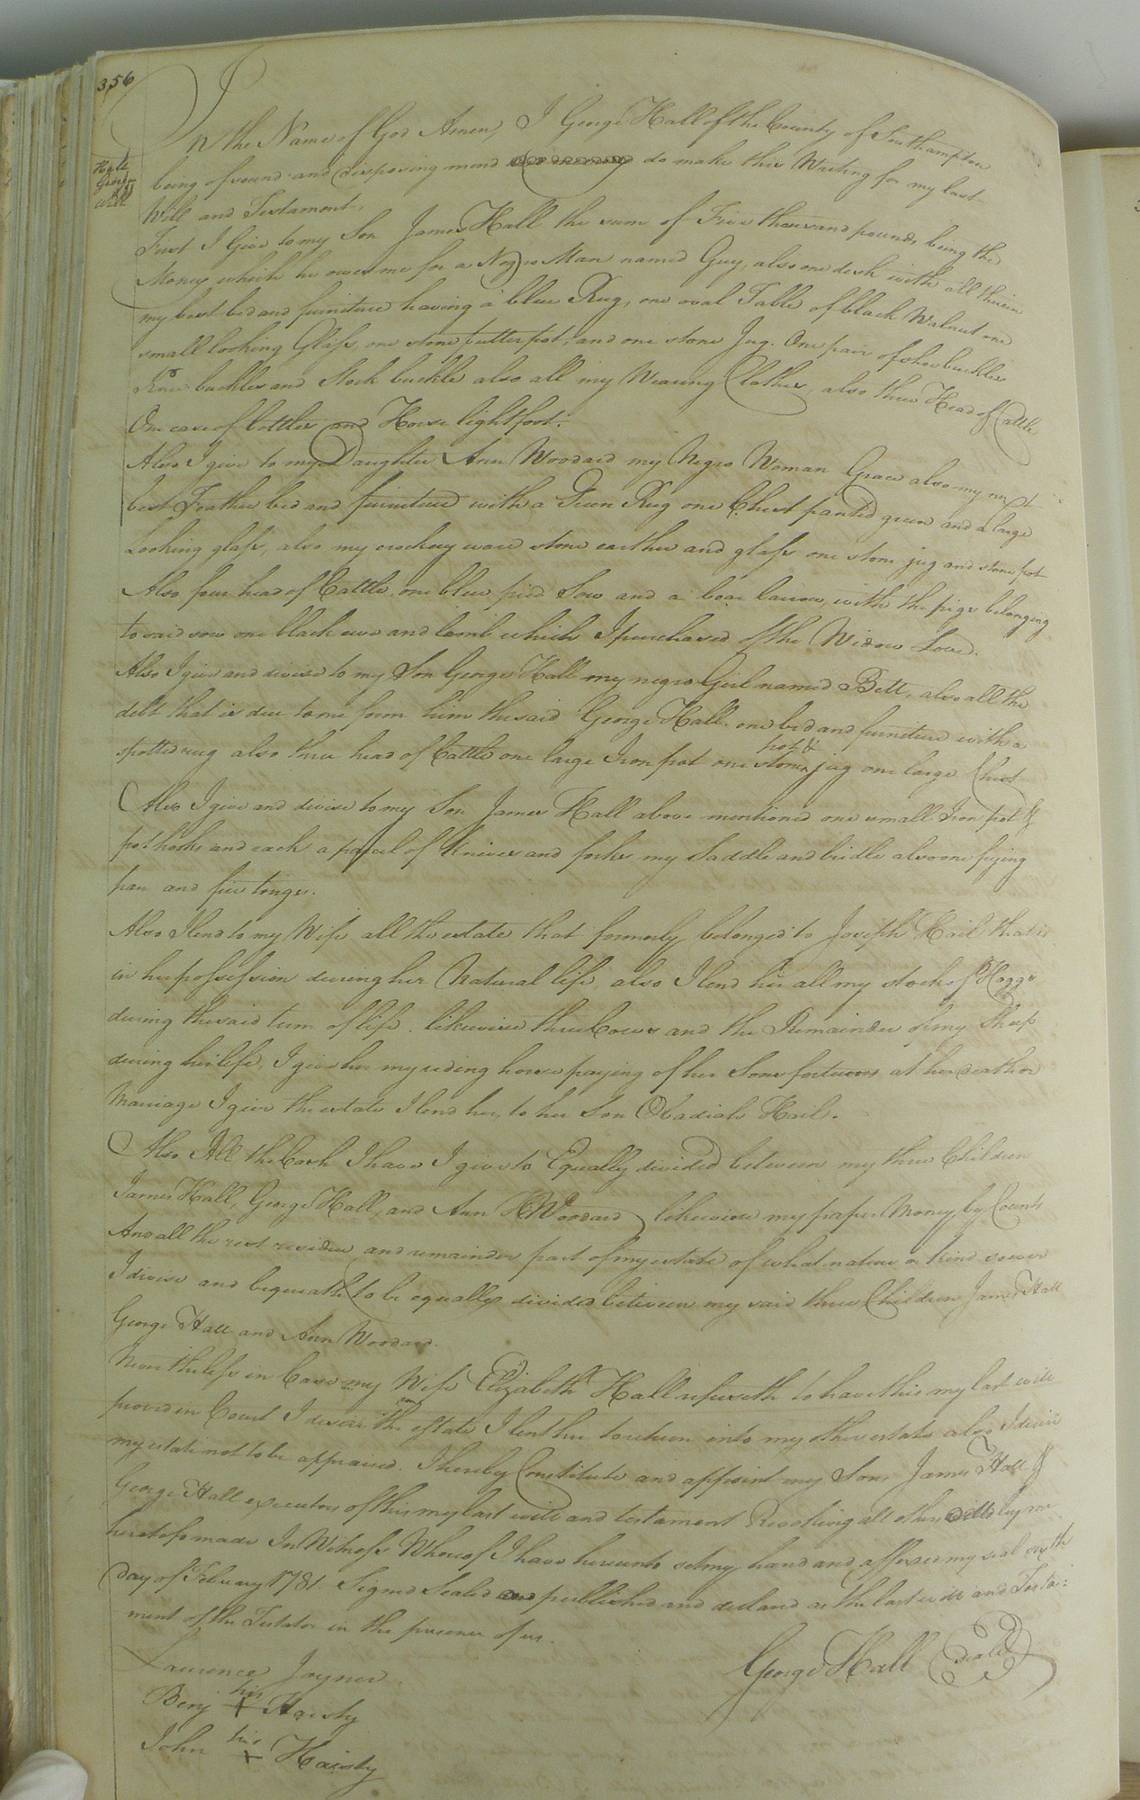 356
Halls
Georg
Will
In the Name of God Amen, I George Hall of the County of Southampton
being of sound and disposing mind do make this Writing for my last
Will and Testament.
First I Give to my Son James Hall the sum of Five thousand pounds being the
Money which he owes me for a Negro Man named Guy, also one desk with all therein
my best bed and furniture having a blue Rug, one oval Table of black Walnut one
small looking Glass, one stone butter pot, and one stone Jug. One pair of shoe buckles
Knee buckles and Stock buckle also all my Wearing Clothes, also three Head of Cattle
One case of bottles and Horse lightfoot.
Also I give to my Daughter Ann Woodard my Negro Woman Grace also my next
best Feather bed and furniture with a Green Rug one Chest painted green and a large
Looking glass, also my crockery ware stone earthen and glass one stone jug and stone pot
Also four head of Cattle, one blue pied Sow and a boar barrow, with the pigs belonging
to said sow one black ewe and lamb which I purchased of the Widow Love.
Also I give and devise to my Son George Hall my negro Girl named Bett, also all the
debt that is due to me from him the said George Hall. one bed and furniture with a
spotted rug also three head of Cattle one large Iron pot one stone pot & jug one large Chest
Also I give and devise to my Son James Hall above mentioned one small Iron pot &
pothooks and rack a parcel of Knives and forks my Saddle and bridle also one frying
pan and fire tongs.
Also I lend to my Wife all the estate that formerly belonged to Joseph Hail that is
in her possession during her Natural life, also I lend her all my stock of Hoggs
during the said term of life. likewise three Cows and the Remainder of my Sheep
during her life, I give her my riding horse paying of her Sons fortunes at her death or
Marriage I give the estate I lend her, to her Son Obadiah Hail.
Also All the Cash I have I give to Equally divided between my three Children
James Hall, George Hall, and Ann Woodard likewise my paper Money by Count
And all the rest residue and remainder part of my estate of what nature or kind soever
I devise and bequeath to be equally divided between my said three Children James Hall
George Hall and Ann Woodard.
Nevertheless in Case my Wife Elizabeth Hall refuseth to have this my last will
proved in Court I desire the estate I lent her to return into my other estate also I desire
my estate not to be appraised. I hereby Constitute and appoint my Sons James Hall &
George Hall executors of this my last will and testament Revoking all others by me
heretofore made In Witness Whereof I have hereunto set my hand and affixed my seal
day of February 1781. Signed Sealed and published and declared as the last will and Testa:
ment of the Testator in the presence of us.
George Hall (Seal)
Laurence Joyner
Benj his + Haisty
John his + Haisty